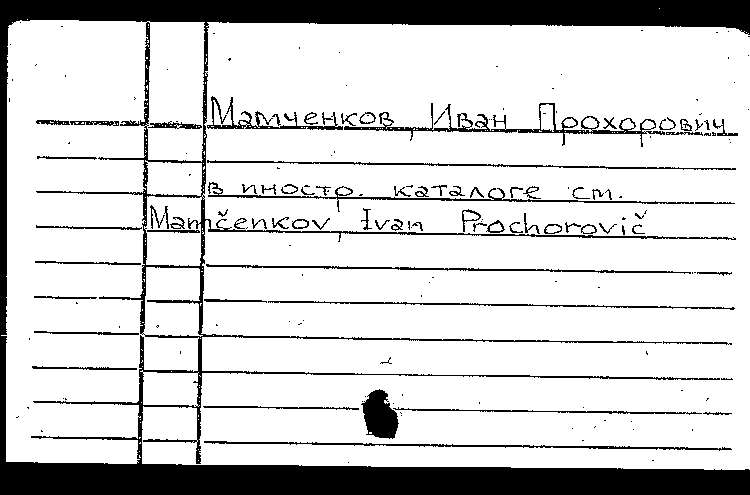 Мамченков, Иван Прохорович
в иностр. каталоге см.
Mamčenkov, Ivan Prochorovič